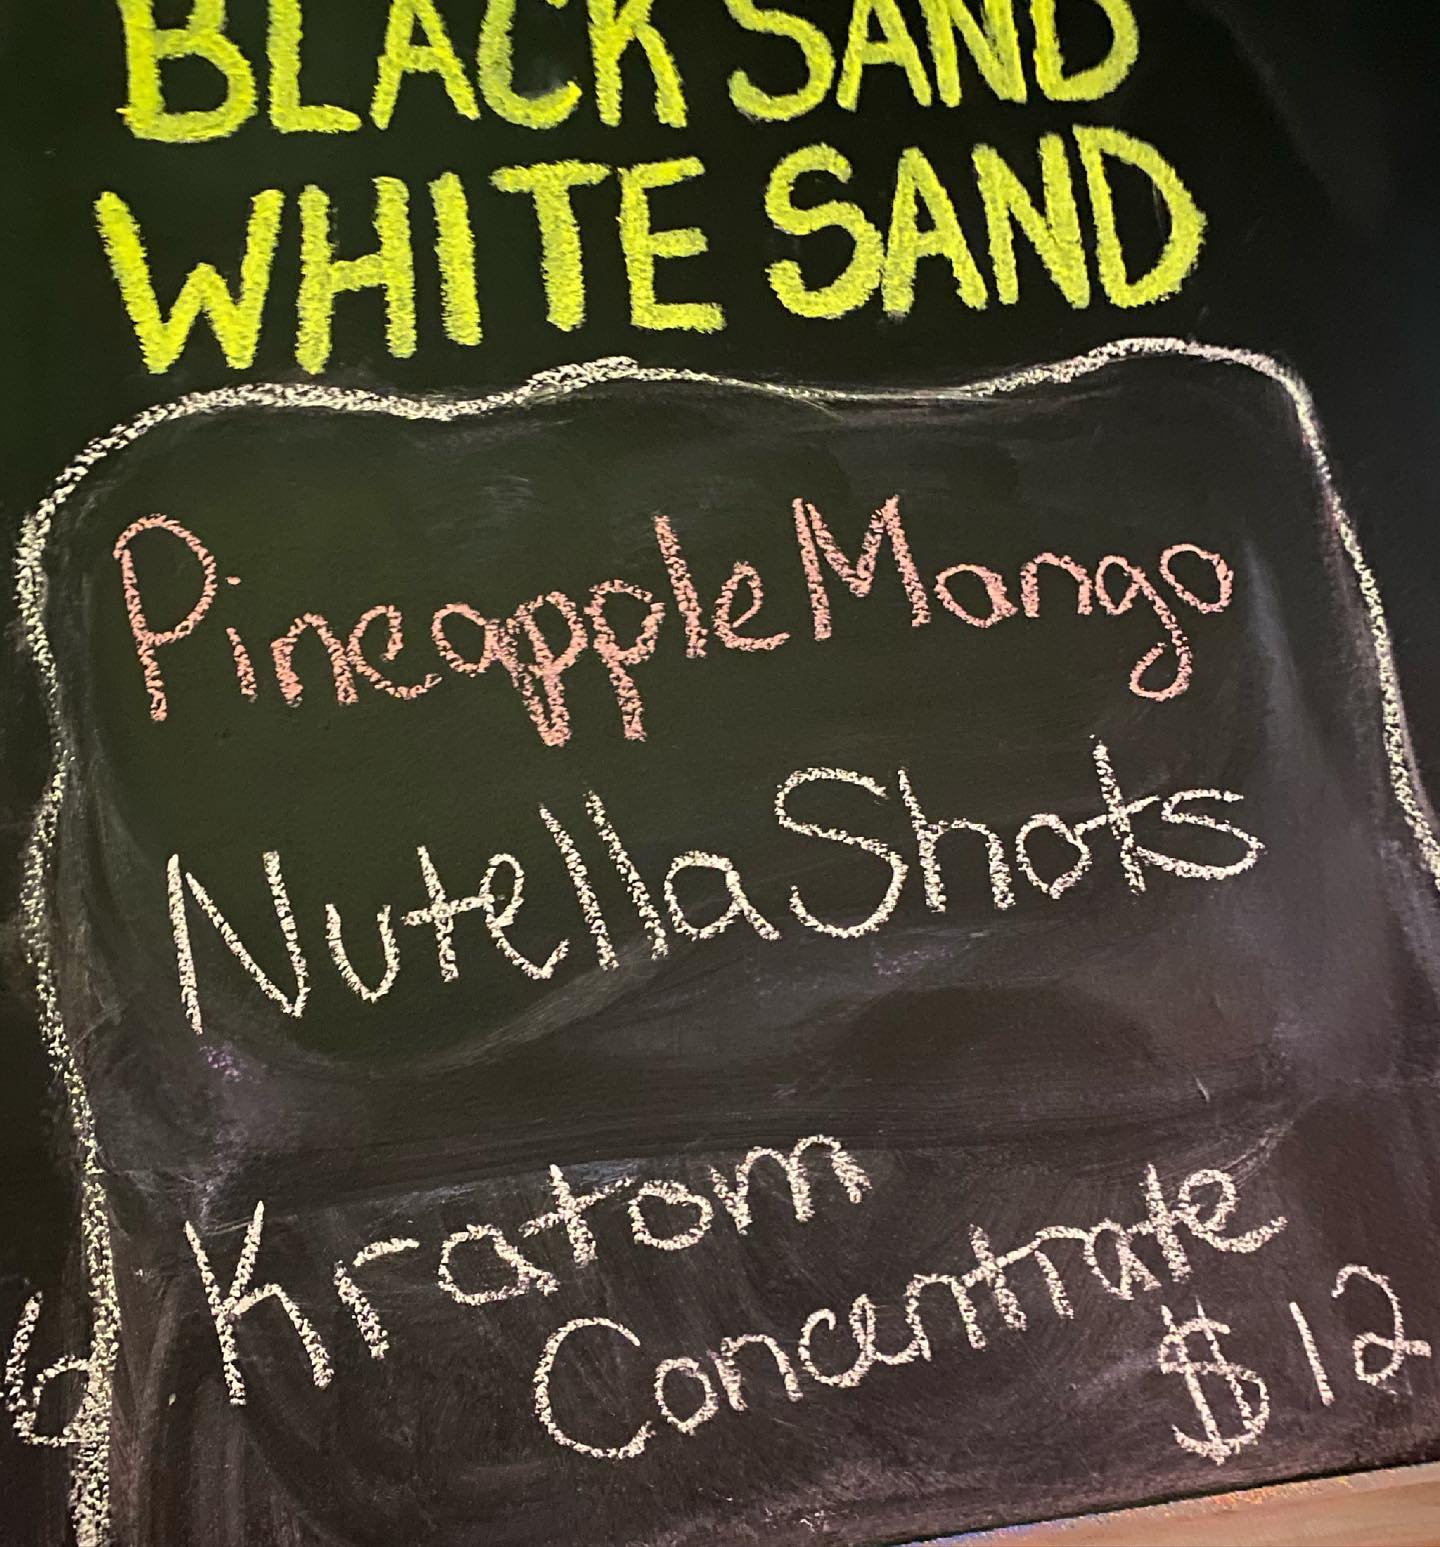 BLACK SAND
WHITE SAND
Pineapple Mango
Nutella Shots
Kratom
Concentrate
$12
6